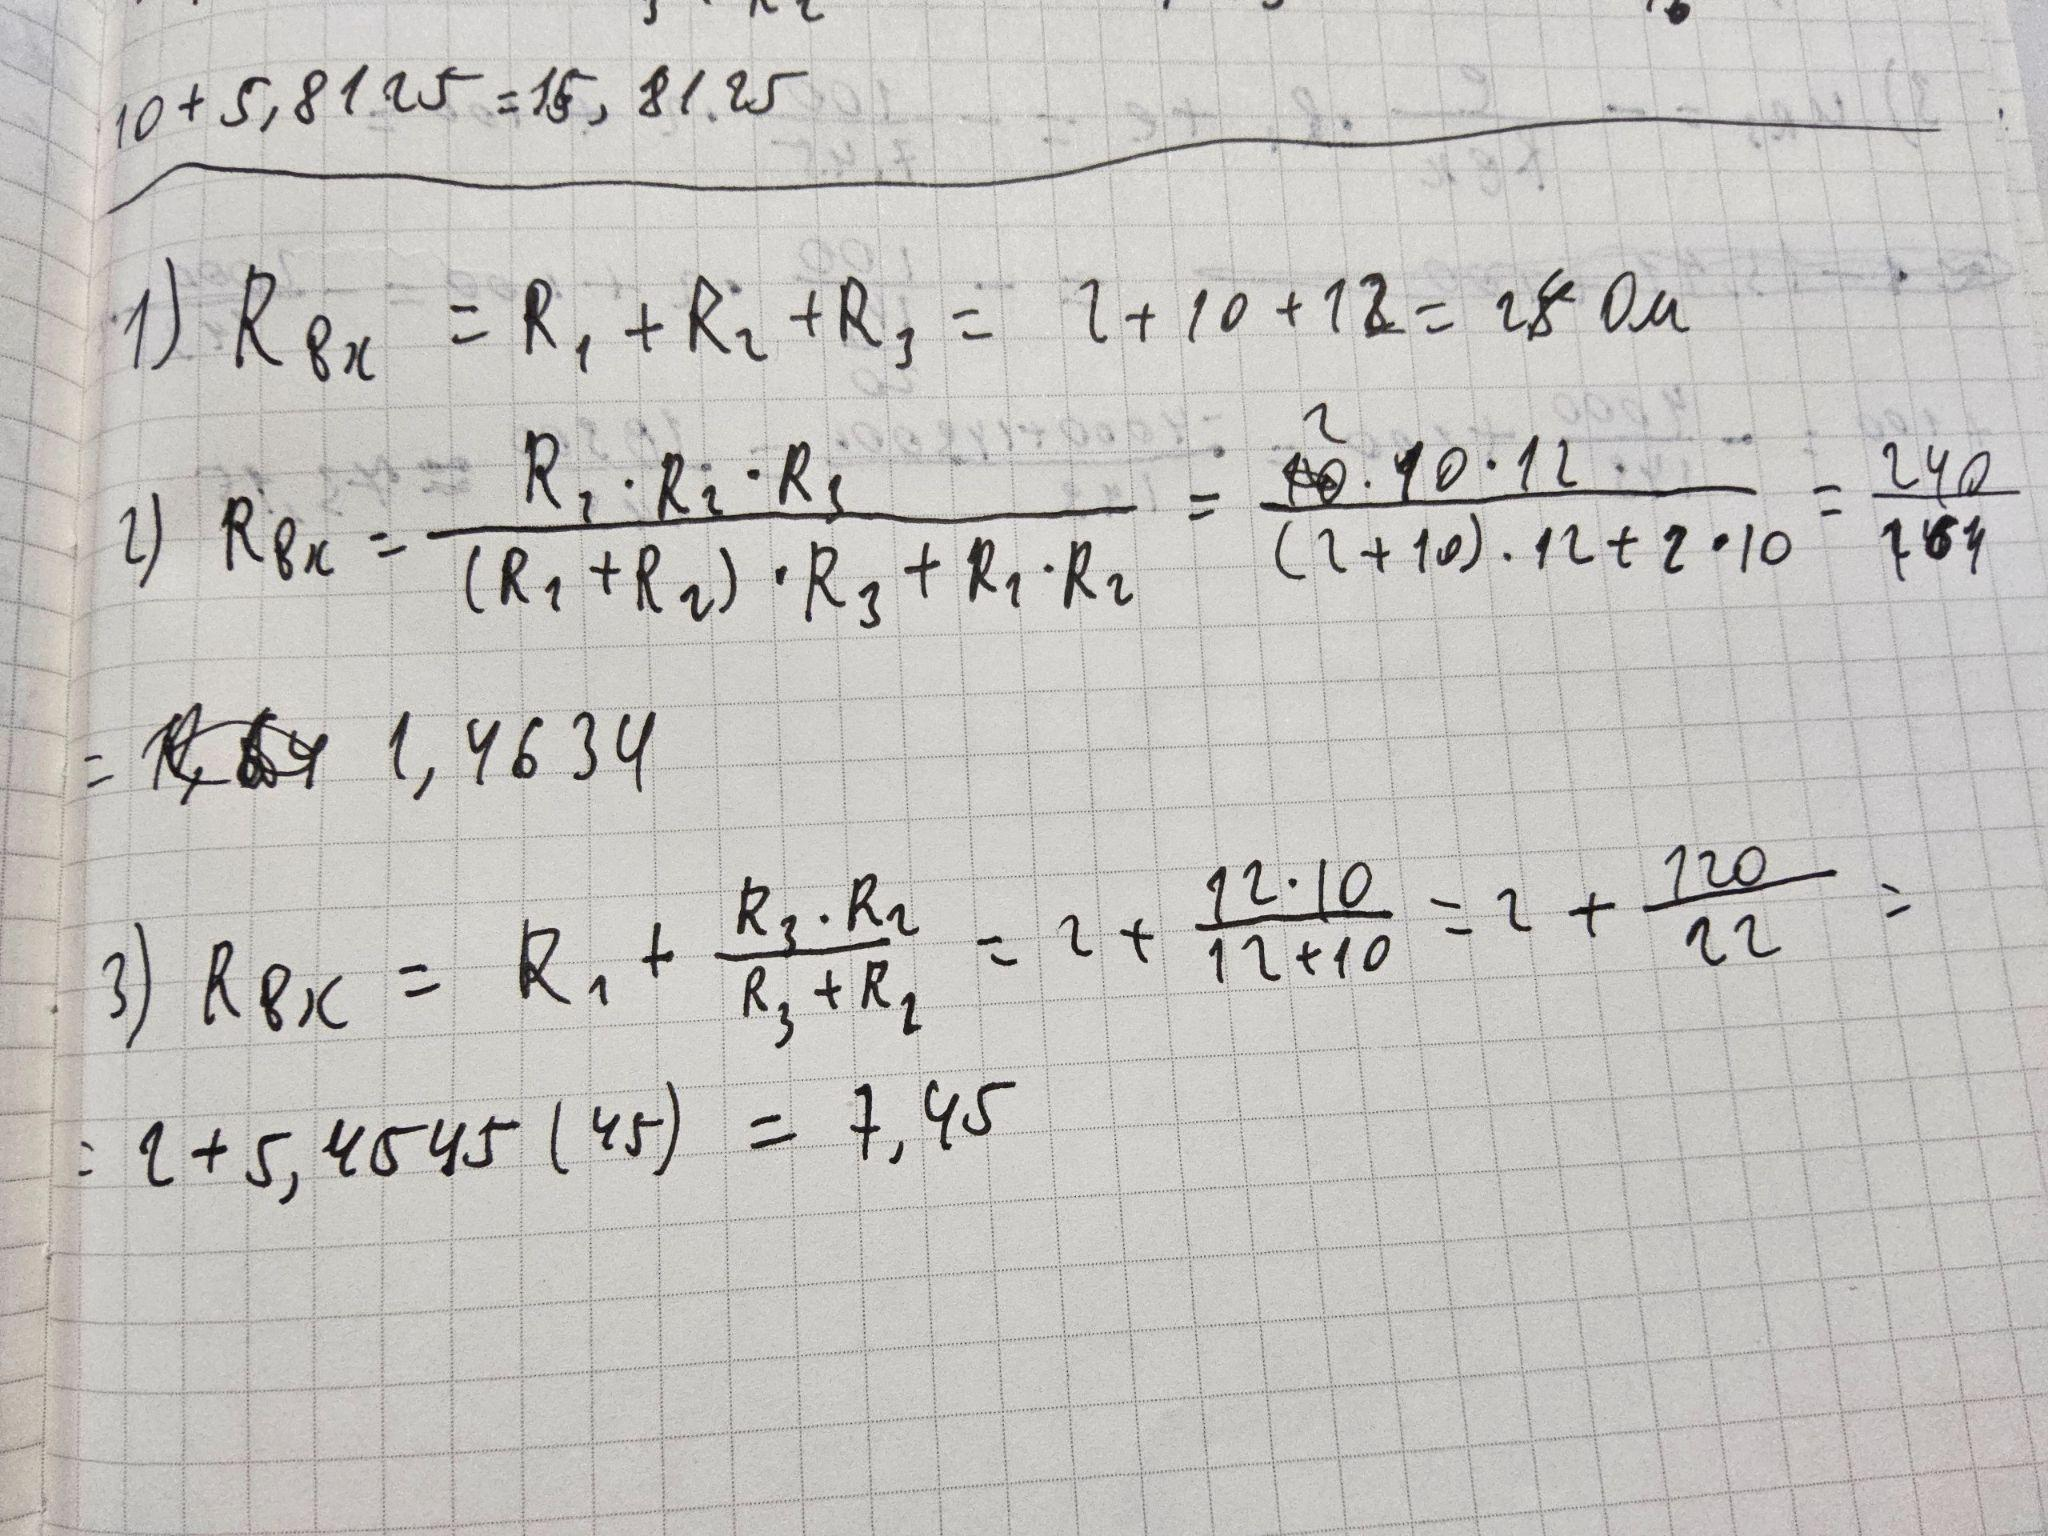 10 + 5,8125 = 15,8125
1) Rвх = R₁ + R₂ + R₃ = 2 + 10 + 12 = 24 Ом
2) Rвх = (R₁ · R₂ · R₃) / ((R₁ + R₂) · R₃ + R₁ · R₂) = (2 · 10 · 12) / ((2 + 10) · 12 + 2 · 10) = 240 / 164
= 1,4634
3) Rвх = R₁ + (R₃ · R₂) / (R₃ + R₂) = 2 + (12 · 10) / (12 + 10) = 2 + 120 / 22 =
= 2 + 5,4545(45) = 7,45